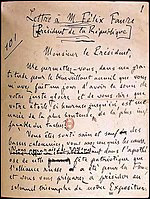 Lettre à M. Félix Faure
Président de la République
Monsieur le Président,
Me permettez-vous, dans ma gra-
titude pour le bienveillant accueil que vous
m'avez fait un jour, d'avoir le souci de
votre juste gloire et de vous dire que
votre étoile, si heureuse jusqu'ici, est mena-
cée de la plus honteuse, de la plus inef-
façable des taches?
Vous êtes sorti sain et sauf des
basses calomnies, vous avez conquis les cœurs.
Vous apparaissez rayonnant dans l'apothé-
ose de cette fête patriotique que
l'alliance russe a été pour la France,
et vous vous préparez à présider au
triomphe de notre Exposition